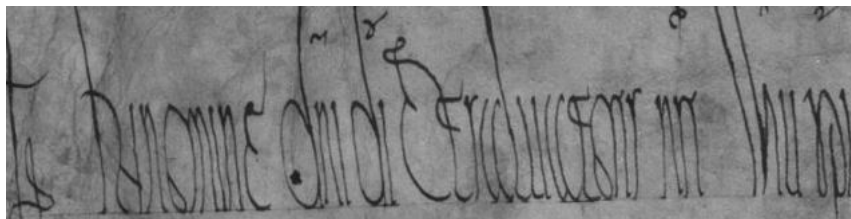 In nomine dni di et saluatoris nri ihu xpi